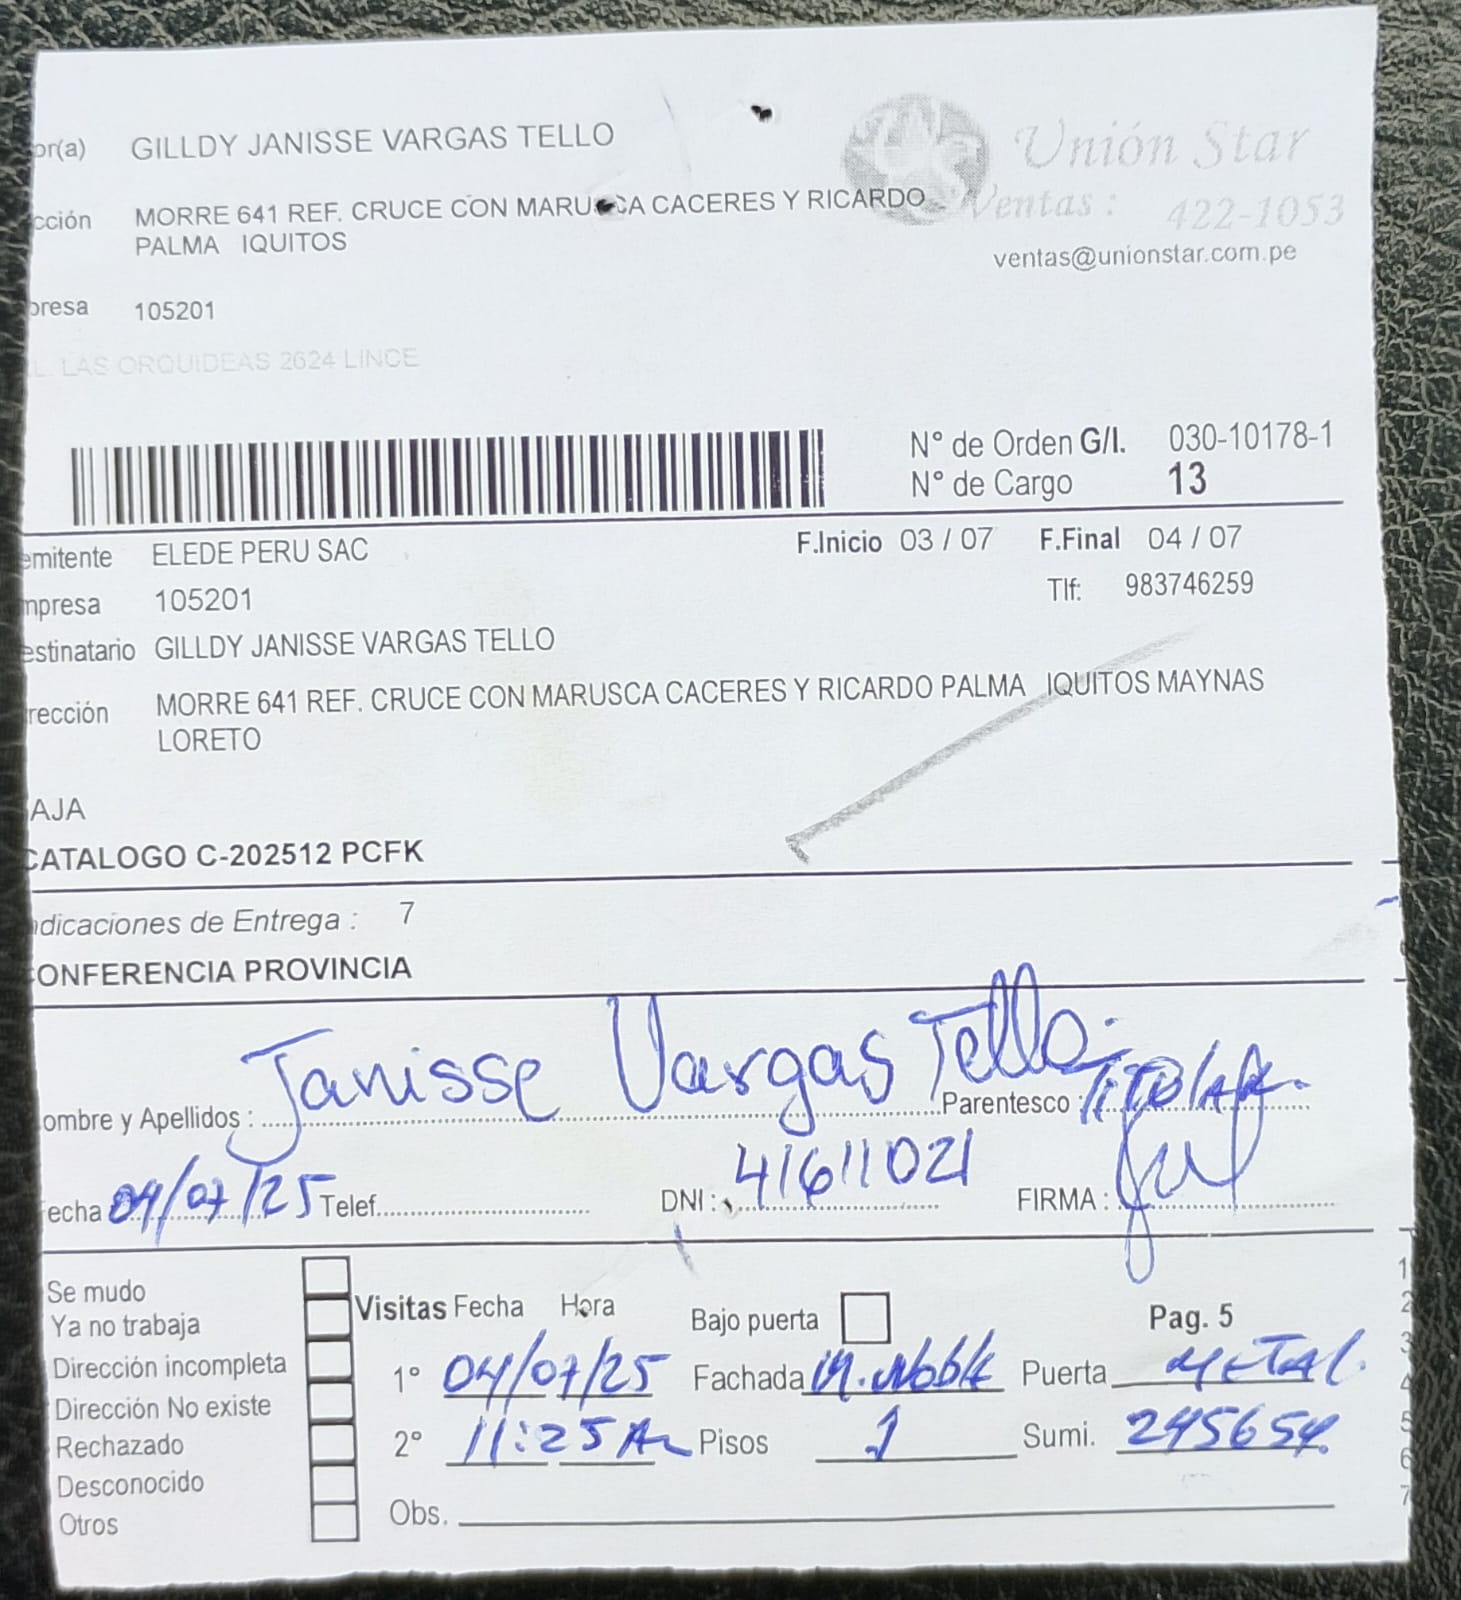 or(a) GILLDY JANISSE VARGAS TELLO
Unión Star
cción MORRE 641 REF. CRUCE CON MARUSCA CACERES Y RICARDO
Ventas : 422-1053
PALMA IQUITOS
ventas@unionstar.com.pe
presa 105201
L. LAS ORQUIDEAS 2624 LINCE
N° de Orden G/I. 030-10178-1
N° de Cargo 13
emitente ELEDE PERU SAC F.Inicio 03 / 07 F.Final 04 / 07
mpresa 105201 Tlf: 983746259
estinatario GILLDY JANISSE VARGAS TELLO
rección MORRE 641 REF. CRUCE CON MARUSCA CACERES Y RICARDO PALMA IQUITOS MAYNAS
LORETO
AJA
CATALOGO C-202512 PCFK
ndicaciones de Entrega : 7
CONFERENCIA PROVINCIA
ombre y Apellidos : Janisse Vargas Tello. Parentesco : TITOLAR.
echa 04/07/25 Telef. DNI : 41611021 FIRMA :
Se mudo
Ya no trabaja
Dirección incompleta
Dirección No existe
Rechazado
Desconocido
Otros
Visitas Fecha Hora Bajo puerta Pag. 5
1° 04/07/25 Fachada M. Noble Puerta METAL.
2° 11:25 Am Pisos 1 Sumi. 245654
Obs.
1
2
3
4
5
6
7